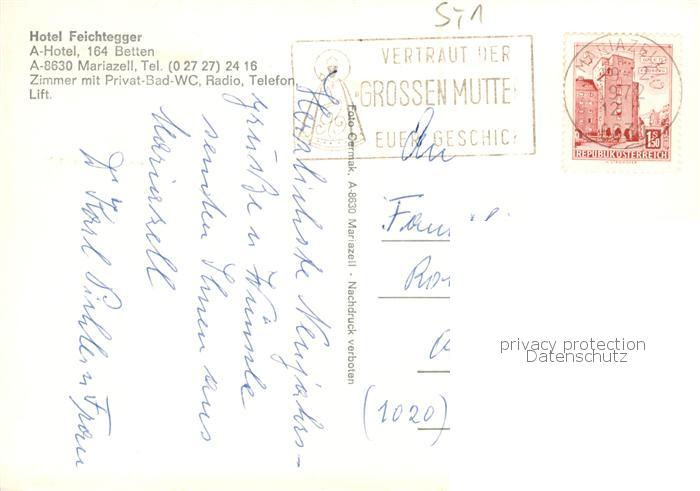 Hotel Feichtegger
A-Hotel, 164 Betten
A-8630 Mariazell, Tel. (0 27 27) 24 16
Zimmer mit Privat-Bad-WC, Radio, Telefon,
Lift.
S,-1
VERTRAUT DER
GROSSEN MUTTE
EUER GESCHIC
MARIAZELL
REPUBLIK ÖSTERREICH
1S50
Herzlichste Neujahrs-
grüße u Wünsche
senden Ihnen aus
Mariazell
Dr Karl u Frau
Foto Cermak, A-8630 Mariazell · Nachdruck verboten
An
Fam
(1020)
privacy protection
Datenschutz